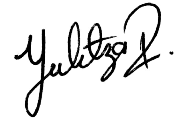 Yulitza R.